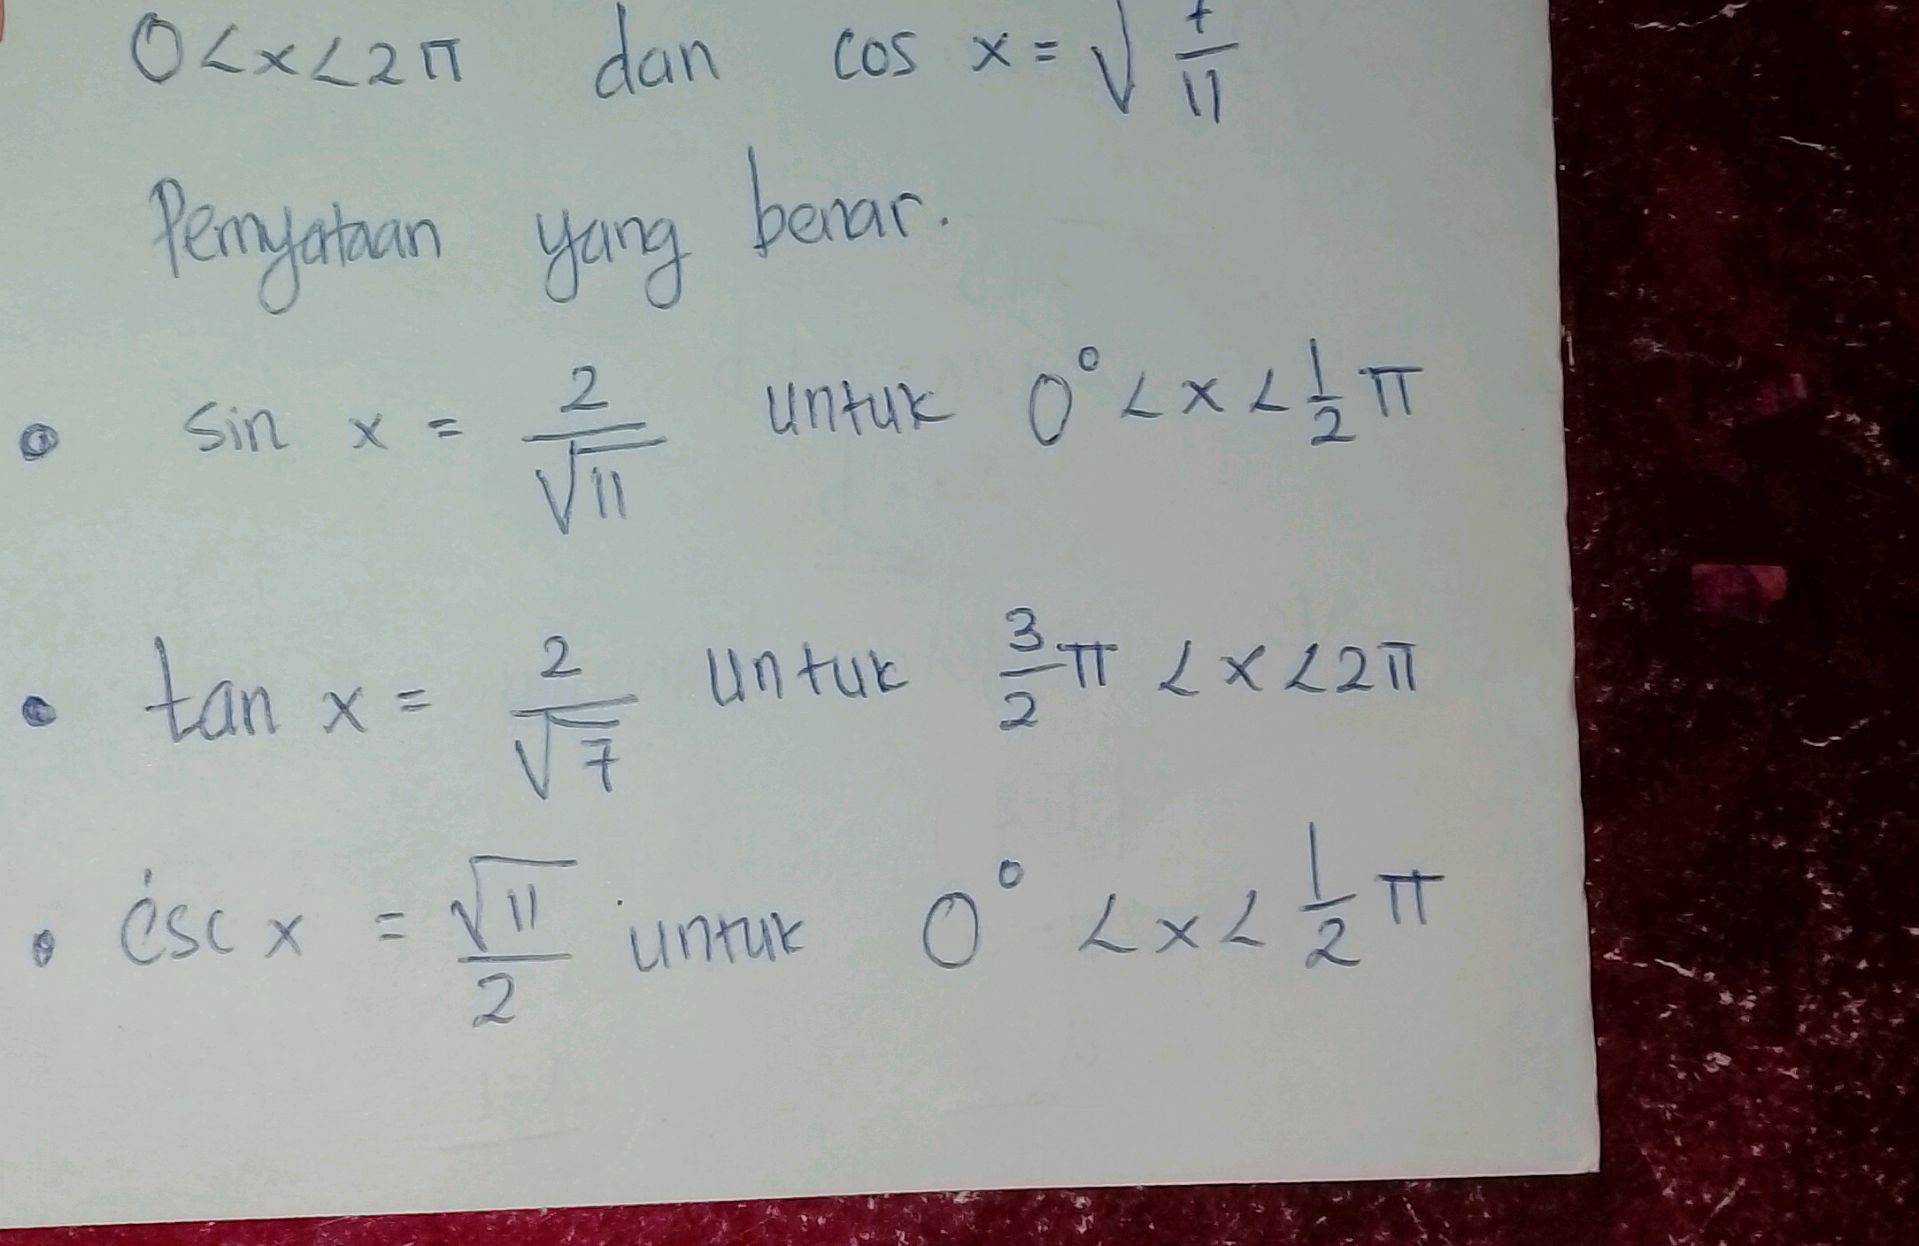 0<x<2π dan cos x = √7/11
Pernyataan yang benar.
• sin x = 2/√11 untuk 0° < x < 1/2 π
• tan x = 2/√7 untuk 3/2 π < x < 2π
• csc x = √11/2 untuk 0° < x < 1/2 π